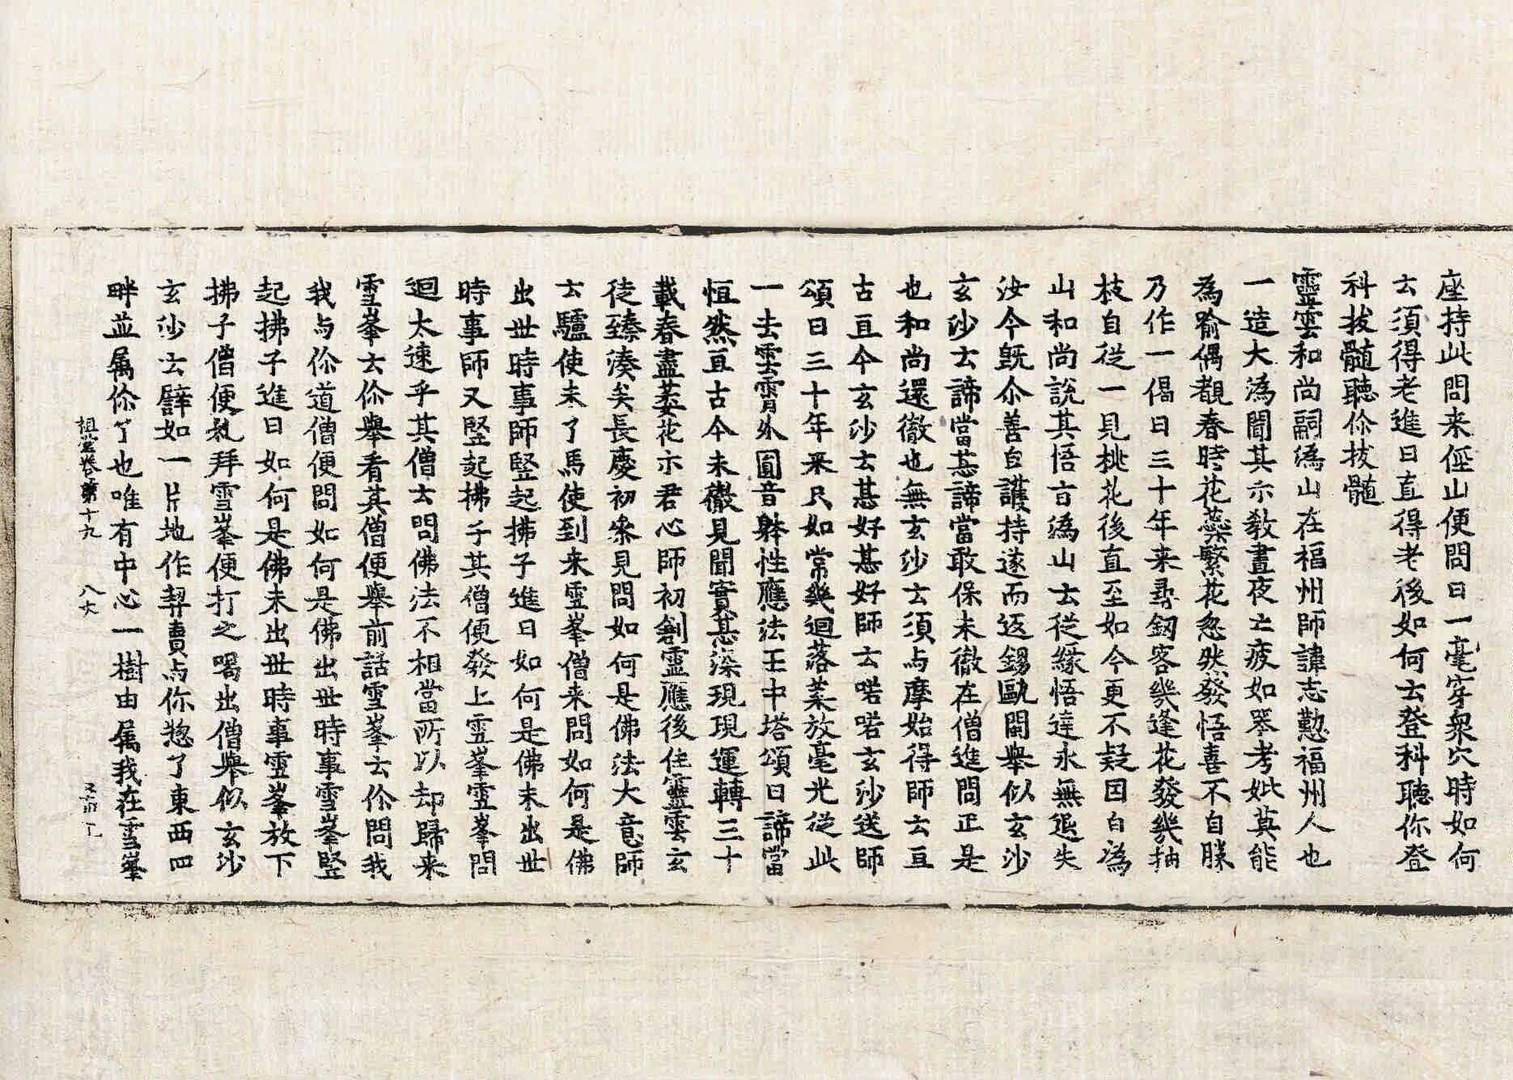 座持此問来俓山便問曰一毫穿衆穴時如何
去須得老進曰直得老後如何去登科聽你登
科拔髓聽你拔髓
靈雲和尚嗣潙山在福州師諱志懃福州人也
一造大潙聞其示教晝夜亡疲如喪考妣莫能
為喻偶覩春時花蘂繁花忽然發悟喜不自勝
乃作一偈曰三十年来尋釼客幾逢花發幾抽
枝自從一見桃花後直至如今更不疑因白潙
山和尚說其悟旨潙山云從緣悟達永無退失
汝今旣尒善自護持遂而返錫甌閩舉似玄沙
玄沙云諦當甚諦當敢保未徹在僧進問正是
也和尚還徹也無玄沙云須与摩始得師云亘
古亘今玄沙云甚好甚好師云喏喏玄沙送師
頌曰三十年来只如常幾迴落葉放毫光從此
一去雲霄外圓音躰性應法王中塔頌曰諦當
恒然亘古今未徹見聞實甚深現現運轉三十
載春盡萎花示君心師初創靈應後住靈雲玄
徒臻湊矣長慶初叅見問如何是佛法大意師
云驢使未了馬使到来雪峯僧来問如何是佛
出世時事師竪起拂子進曰如何是佛未出世
時事師又竪起拂子其僧便發上雪峯雪峯問
迴太速乎其僧云問佛法不相當所以却歸来
雪峯云你舉看其僧便舉前話雪峯云你問我
我与你道僧便問如何是佛出世時事雪峯竪
起拂子進曰如何是佛未出世時事雪峯放下
拂子僧便礼拜雪峯便打之喝出僧舉似玄沙
玄沙云譬如一片地作契賣与你惣了東西四
畔並属你了也唯有中心一樹由属我在雪峯
祖堂卷第十九 八丈